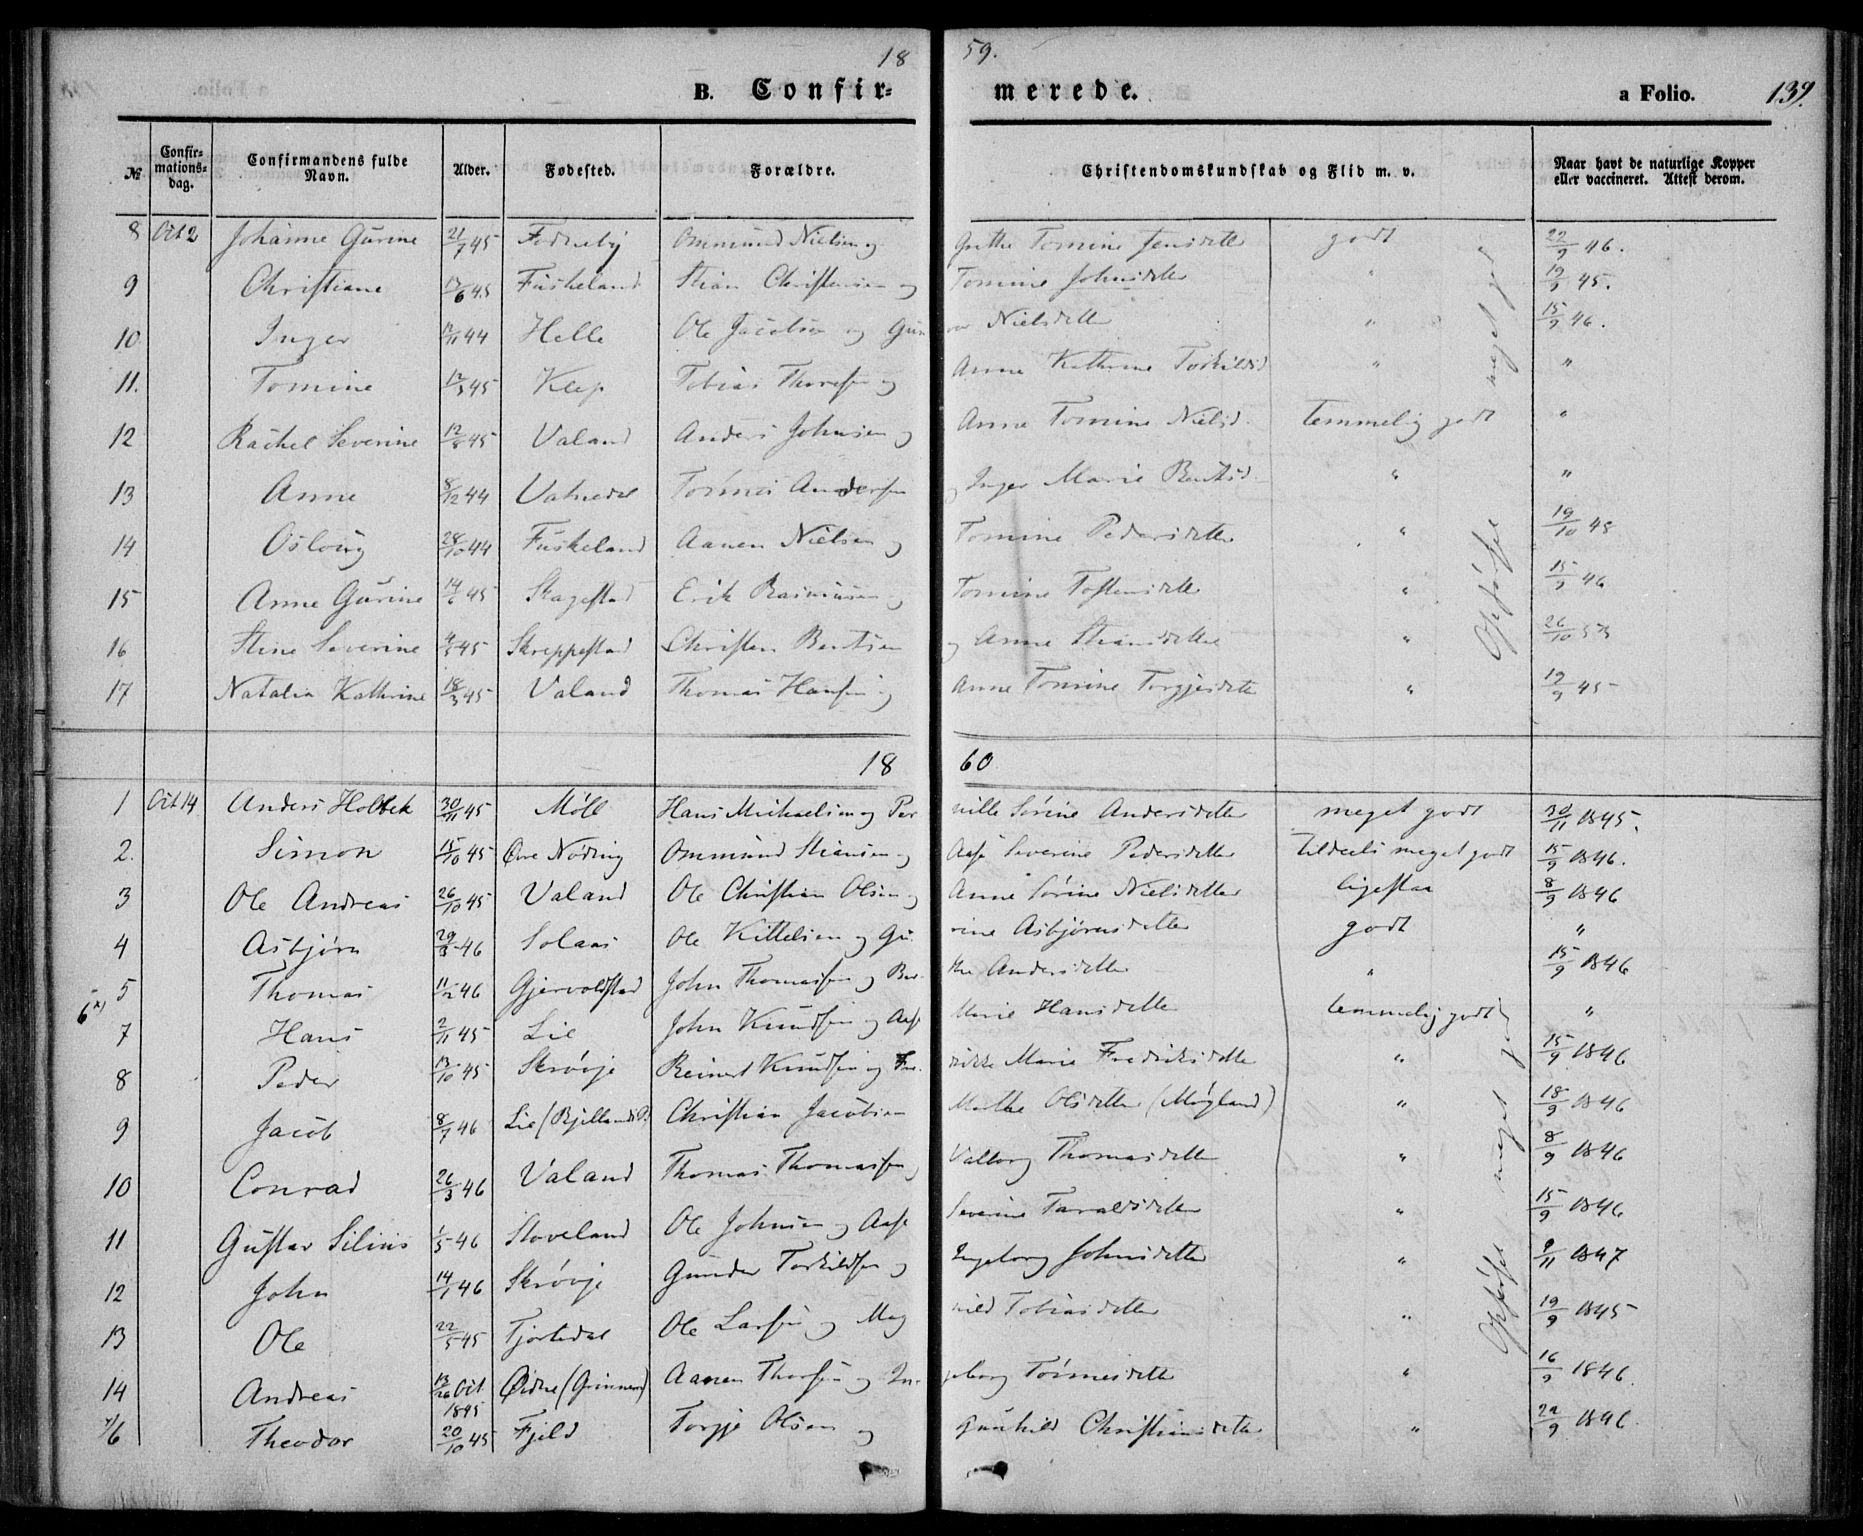 18 59.
B. Confir- merede. a Folio. 139.
№ Confir-mations-dag. Confirmandens fulde Navn. Alder. Fødested. Forældre. Christendomskundskab og Flid m. v. Naar havt de naturlige Kopper eller vaccineret. Attest derom.
8 Oct 2 Johanne Gurine 21/7 45 Ommund Nielsen og Grethe Tomine Jensdatter godt 22/9 46.
9 Christiane 6 45 Fuskeland Stian Christensen og Tomine Johnsdatter " 19/9 45.
10 Inger 11 44 Helle Ole Jacobsen og Gunvor Nielsdatter " 15/9 46.
11. Tomine 12/3 45 Klep Tobias Thorsen og Anne Kathrine Torkildsd " "
12 Rachel Severine 12/8 45 Valand Anders Johnsen og Anne Tomine Nielsd. temmelig godt "
13 Anne 8/12 44 Vatnedal Tønnes Andersen og Inger Marie Bentsd. " "
14 Oslaug 28/10 44 Fuskeland Aanen Nielsen og Tomine Pedersdatter " 19/10 45
15 Anne Gurine 14/6 45 Skagestad Erik Rasmusen og Tomine Tostensdatter " 15/9 46
16 Stine Severine 4/5 45 Skreppestad Christen Bentsen og Anne Stiansdatter " 26/10 53
17 Natalia Kathrine 18/3 45 Valand Thomas Hansen og Anne Tomine Torgjesdatter " 19/9 45
Opførsel meget god
18 60
1 Oct 14 Anders Holbek 30/11 45 Møll Hans Michaelsen og Pernille Sørine Andersdatter meget godt 30/11 1845.
2. Simon 15/10 45 Øvre Nøding Ommund Stiansen og Aase Severine Pedersdatter tildeels meget godt 15/9 1846.
3 Ole Andreas 26/10 45 Valand Ole Christian Olsen og Anne Sørine Nielsdatter ligesaa 8/9 1846
4 Asbjørn 29/3 46 Solaas Ole Kittelsen og Gurine Asbjørnsdatter godt "
5 Thomas 11/2 46 Gjervoldstad John Thomassen og Berthe Andersdatter " 15/9 1846
6 x)
7 Hans 2/11 45 Lie John Knudsen og Aase Marie Hansdatter temmelig godt "
8 Peder 13/10 45 Skrøvje Reinert Knudsen og Fredrikke Marie Fredriksdatter " 15/9 1846
9 Jacob 8/7 46 Lie (Bjellands P.) Christian Jacobsen Marthe Olsdatter (Møgland) " 18/9 1846
10 Conrad 26/3 46 Valand Thomas Thomassen og Valborg Thomasdatter " 8/9 1846
11 Gustav Silius 1/5 46 Stoveland Ole Johnsen og Aase Severine Taraldsdatter " 15/9 1846
12 John 14/1 46 Skrøvje Gunder Torkildsen og Ingeborg Johnsdatter " 9/11 1847
13 Ole 22/5 45 Tjortedal Ole Larsen og Maghild Tobiasdatter " 19/9 1845
14 Andreas 13/26 Oct 1845 Øidne (Grinnem) Aanen Thorsen og Ingeborg Tønnesdatter " 16/9 1846.
x/6 Theodor 20/10 45 Fjeld Torgje Olsen og Gunhild Christiansdatter " 22/9 1846
Opførsel meget god